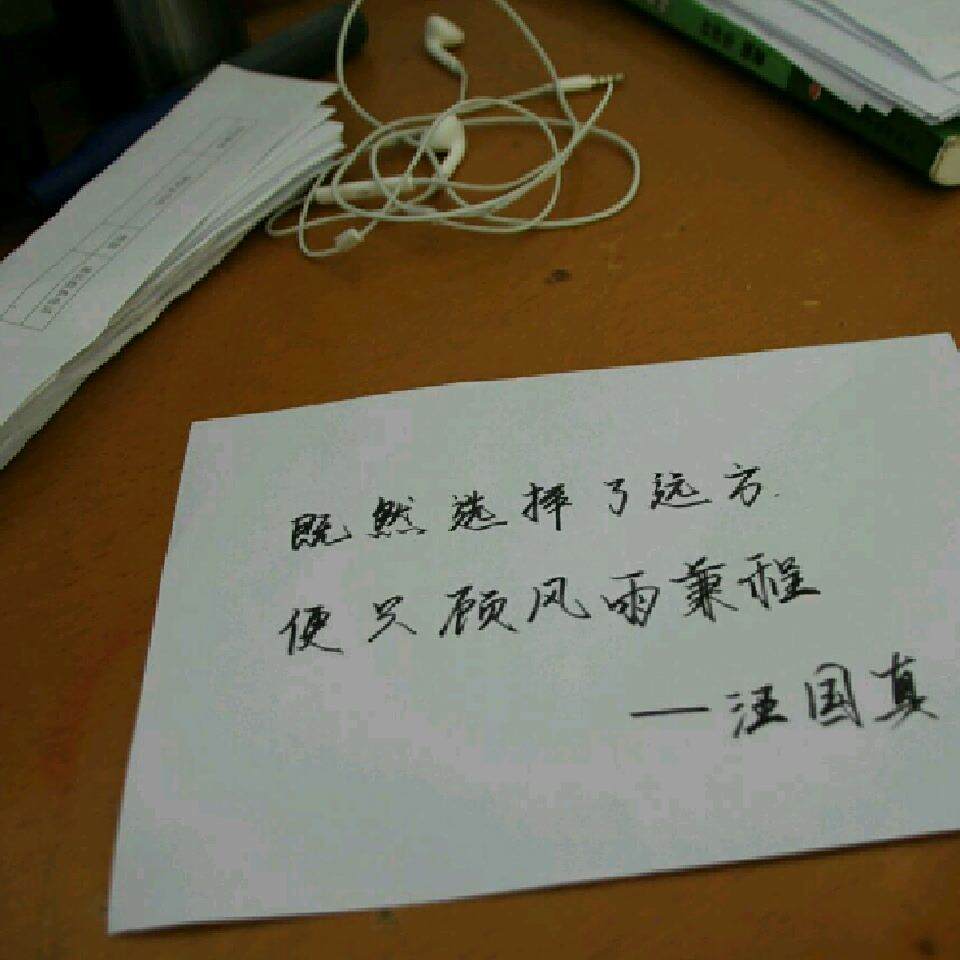 既然选择了远方
便只顾风雨兼程
——汪国真